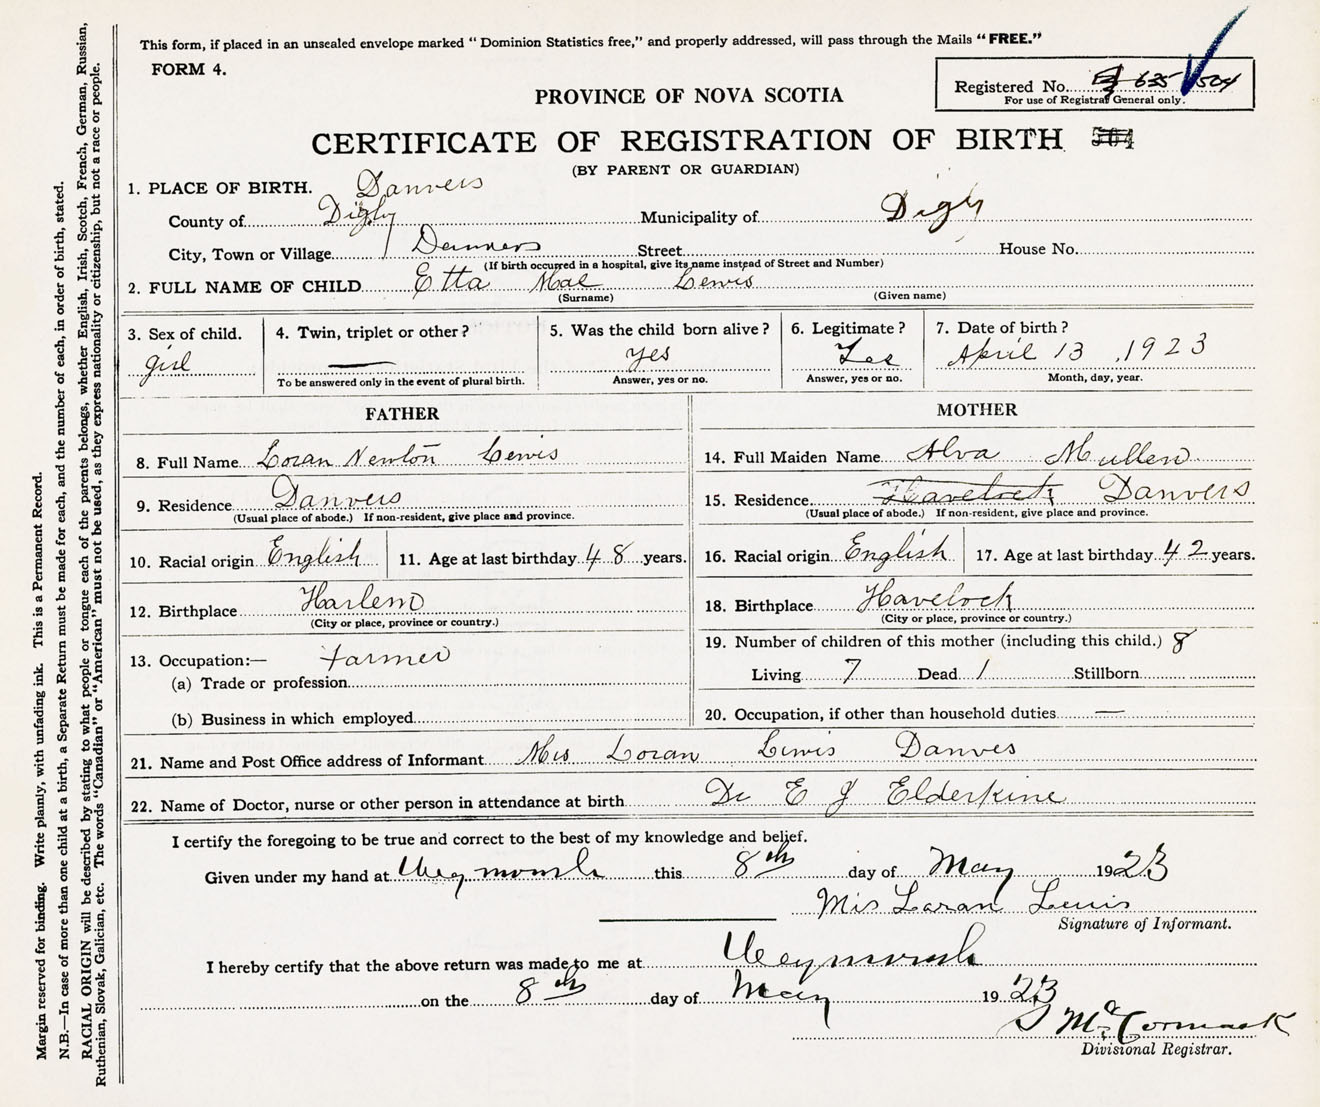 This form, if placed in an unsealed envelope marked “Dominion Statistics free,” and properly addressed, will pass through the Mails “FREE.”
FORM 4.
Registered No. 635 504
For use of Registrar General only.
PROVINCE OF NOVA SCOTIA
CERTIFICATE OF REGISTRATION OF BIRTH 504
(BY PARENT OR GUARDIAN)
1. PLACE OF BIRTH. Danvers
County of Digby Municipality of Digby
City, Town or Village Danvers Street House No.
(If birth occurred in a hospital, give its name instead of Street and Number)
2. FULL NAME OF CHILD Etta Mae Lewis
(Surname) (Given name)
3. Sex of child. 4. Twin, triplet or other? 5. Was the child born alive? 6. Legitimate? 7. Date of birth?
girl — yes Yes April 13, 1923
To be answered only in the event of plural birth. Answer, yes or no. Answer, yes or no. Month, day, year.
FATHER
8. Full Name Loran Newton Lewis
9. Residence Danvers
(Usual place of abode.) If non-resident, give place and province.
10. Racial origin English 11. Age at last birthday 48 years.
12. Birthplace Harlem
(City or place, province or country.)
13. Occupation:— farmer
(a) Trade or profession
(b) Business in which employed
MOTHER
14. Full Maiden Name Alva Mullen
15. Residence Havelock Danvers
(Usual place of abode.) If non-resident, give place and province.
16. Racial origin English 17. Age at last birthday 42 years.
18. Birthplace Havelock
(City or place, province or country.)
19. Number of children of this mother (including this child.) 8
Living 7 Dead 1 Stillborn
20. Occupation, if other than household duties —
21. Name and Post Office address of Informant Mrs Loran Lewis Danves
22. Name of Doctor, nurse or other person in attendance at birth Dr E J Elderkine
I certify the foregoing to be true and correct to the best of my knowledge and belief.
Given under my hand at Weymouth this 8th day of May 1923
Mrs Loran Lewis
Signature of Informant.
I hereby certify that the above return was made to me at Weymouth
on the 8th day of May 1923
McCormack
Divisional Registrar.
Margin reserved for binding. Write plainly, with unfading ink. This is a Permanent Record.
N.B.—In case of more than one child at a birth, a Separate Return must be made for each, and the number of each, in order of birth, stated.
RACIAL ORIGIN will be described by stating to what people or tongue each of the parents belongs, whether English, Irish, Scotch, French, German, Russian,
Ruthenian, Slovak, Galician, etc. The words “Canadian” or “American” must not be used, as they express nationality or citizenship, but not a race or people.